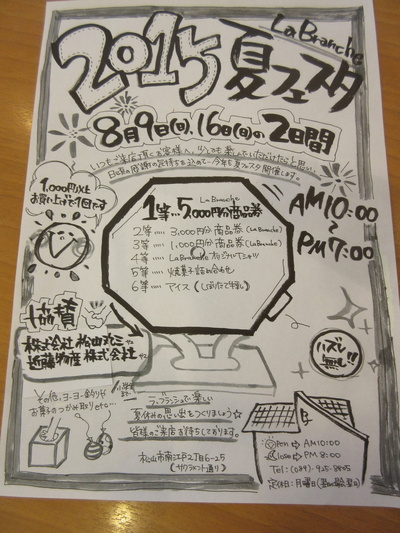 La Branche
2015 夏フェスタ
8月9日(日),16日(日)の2日間
いつもご来店頂くお客様へ、少しでも楽しんでいただけたらと思い、
日頃の感謝の気持ちを込めて、今年も夏フェスタ開催します。
1,000円以上
お買い上げで1回です
La Branche
1等…5,000円分商品券
2等 …… 3,000円分商品券(La Branche)
3等 …… 1,000円分商品券(La Branche)
4等 …… La BrancheオリジナルTシャツ
5等 …… 焼菓子詰め合わせ
6等 …… アイス
AM10:00
〜
PM7:00
協賛
株式会社 松山丸三
近藤物産 株式会社
ハズレ
無し!!
その他,ヨーヨー釣りや
お菓子のつかみ取り etc…
ラ・ブランシュで楽しい
夏休みの思い出をつくりましょう☆
皆様のご来店お待ちしております。
松山市南江戸2丁目6-25
(サクラメント通り)
Open ⇨ AM10:00
Close ⇨ PM.8:00
Tel:(089)-925-8805
定休日:月曜日